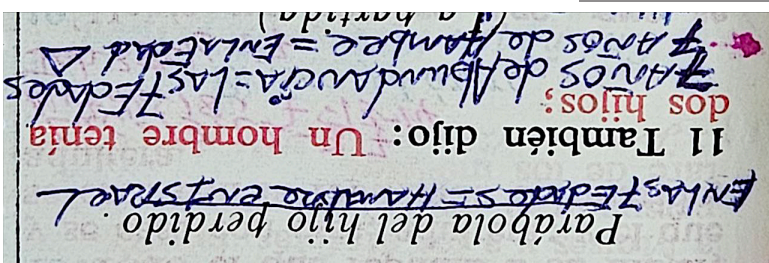 Parábola del hijo perdido.
EN LAS 7 Edades = Hambre en ISRAEL
11 También dijo: Un hombre tenía
dos hijos;
7 AÑOS de AbundANCIA = LAS 7 Edades
7 AÑOS de HAmbre. = EN LA Edad Δ